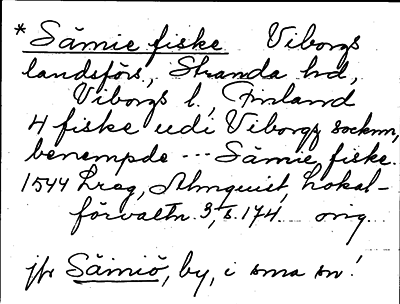 * Sämie fiske Viborgs
landsförs., Stranda hd,
Viborgs l., Finland
4 fiske udi Viborgz socknn,
benempde --- Sämie fiske.
1544 Lreg, Almquist, Lokal-
förvaltn. 3, s. 174 orig.
jfr Sämiö, by, i sma sn!